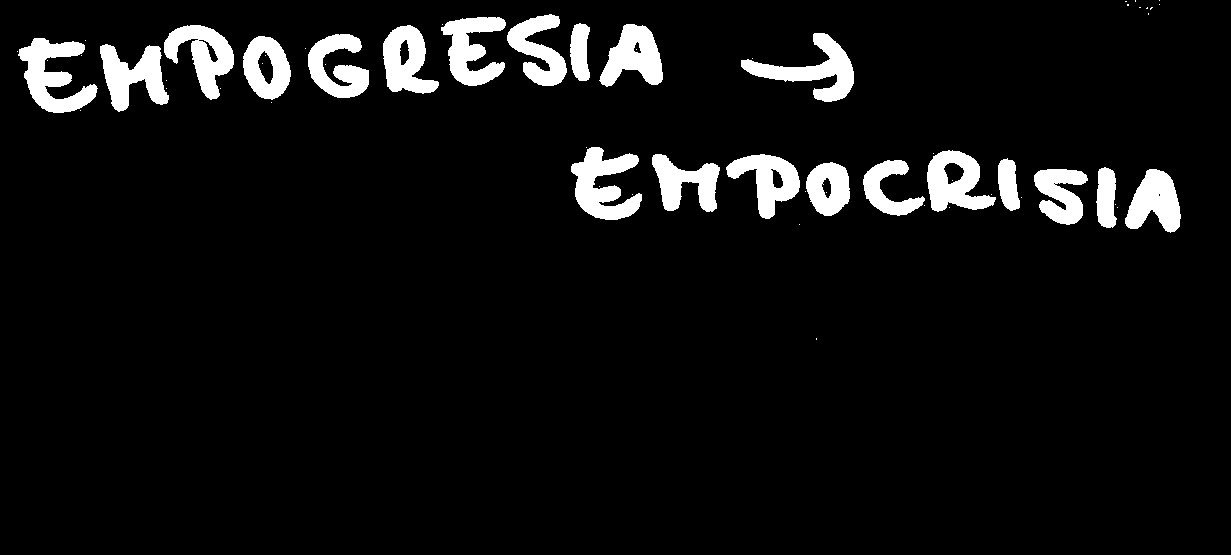 EMPOGRESIA →
EMPOCRISIA